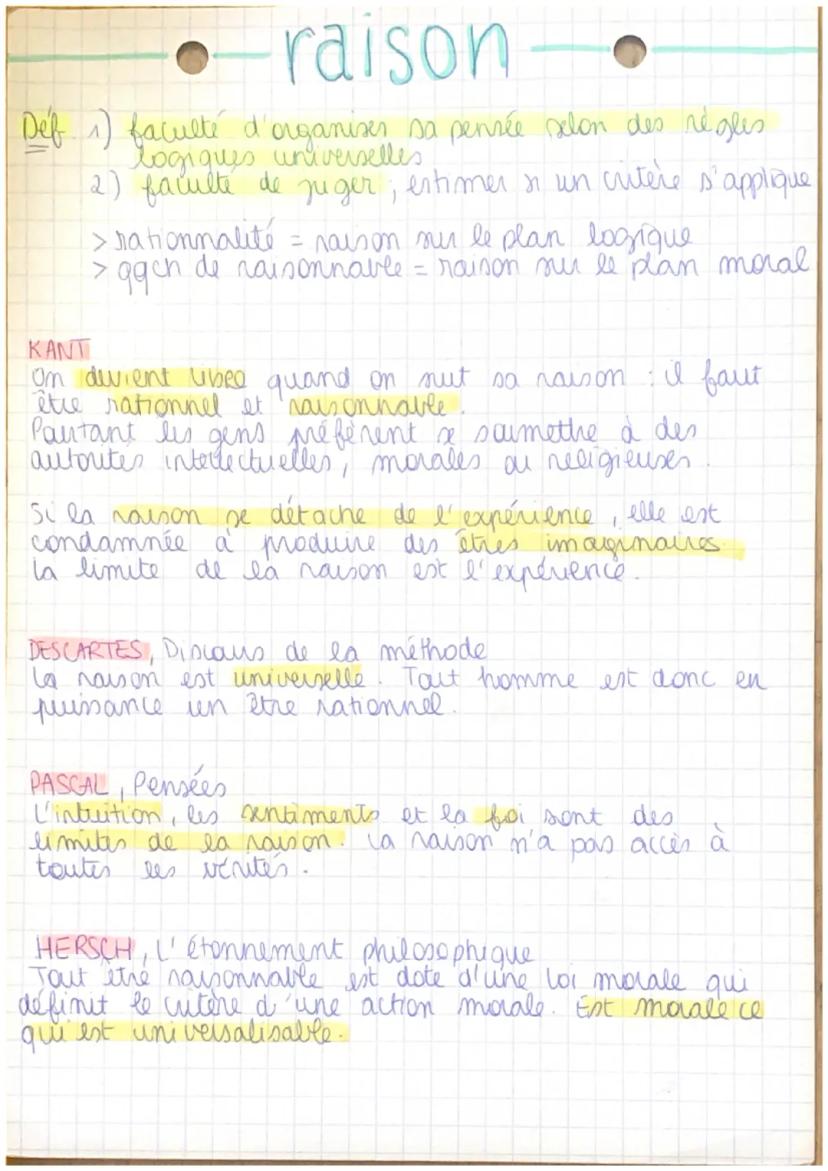 raison
Déf 1) faculté d'organiser sa pensée selon des règles
logiques universelles
2) faculté de juger, estimer si un critère s'applique
> rationnalité = raison sur le plan logique
> qqch de raisonnable = raison sur le plan moral
KANT
On devient libre quand on suit sa raison : il faut
être rationnel et raisonnable.
Pourtant les gens préfèrent se soumettre à des
autorités intellectuelles, morales ou religieuses.
Si la raison se détache de l'expérience, elle est
condamnée à produire des êtres imaginaires.
La limite de la raison est l'expérience.
DESCARTES, Discours de la méthode
La raison est universelle. Tout homme est donc en
puissance un être rationnel.
PASCAL, Pensées
L'intuition, les sentiments et la foi sont des
limites de la raison. La raison n'a pas accès à
toutes les vérités.
HERSCH, L'étonnement philosophique
Tout être raisonnable est doté d'une loi morale qui
définit le critère d'une action morale. Est morale ce
qui est universalisable.